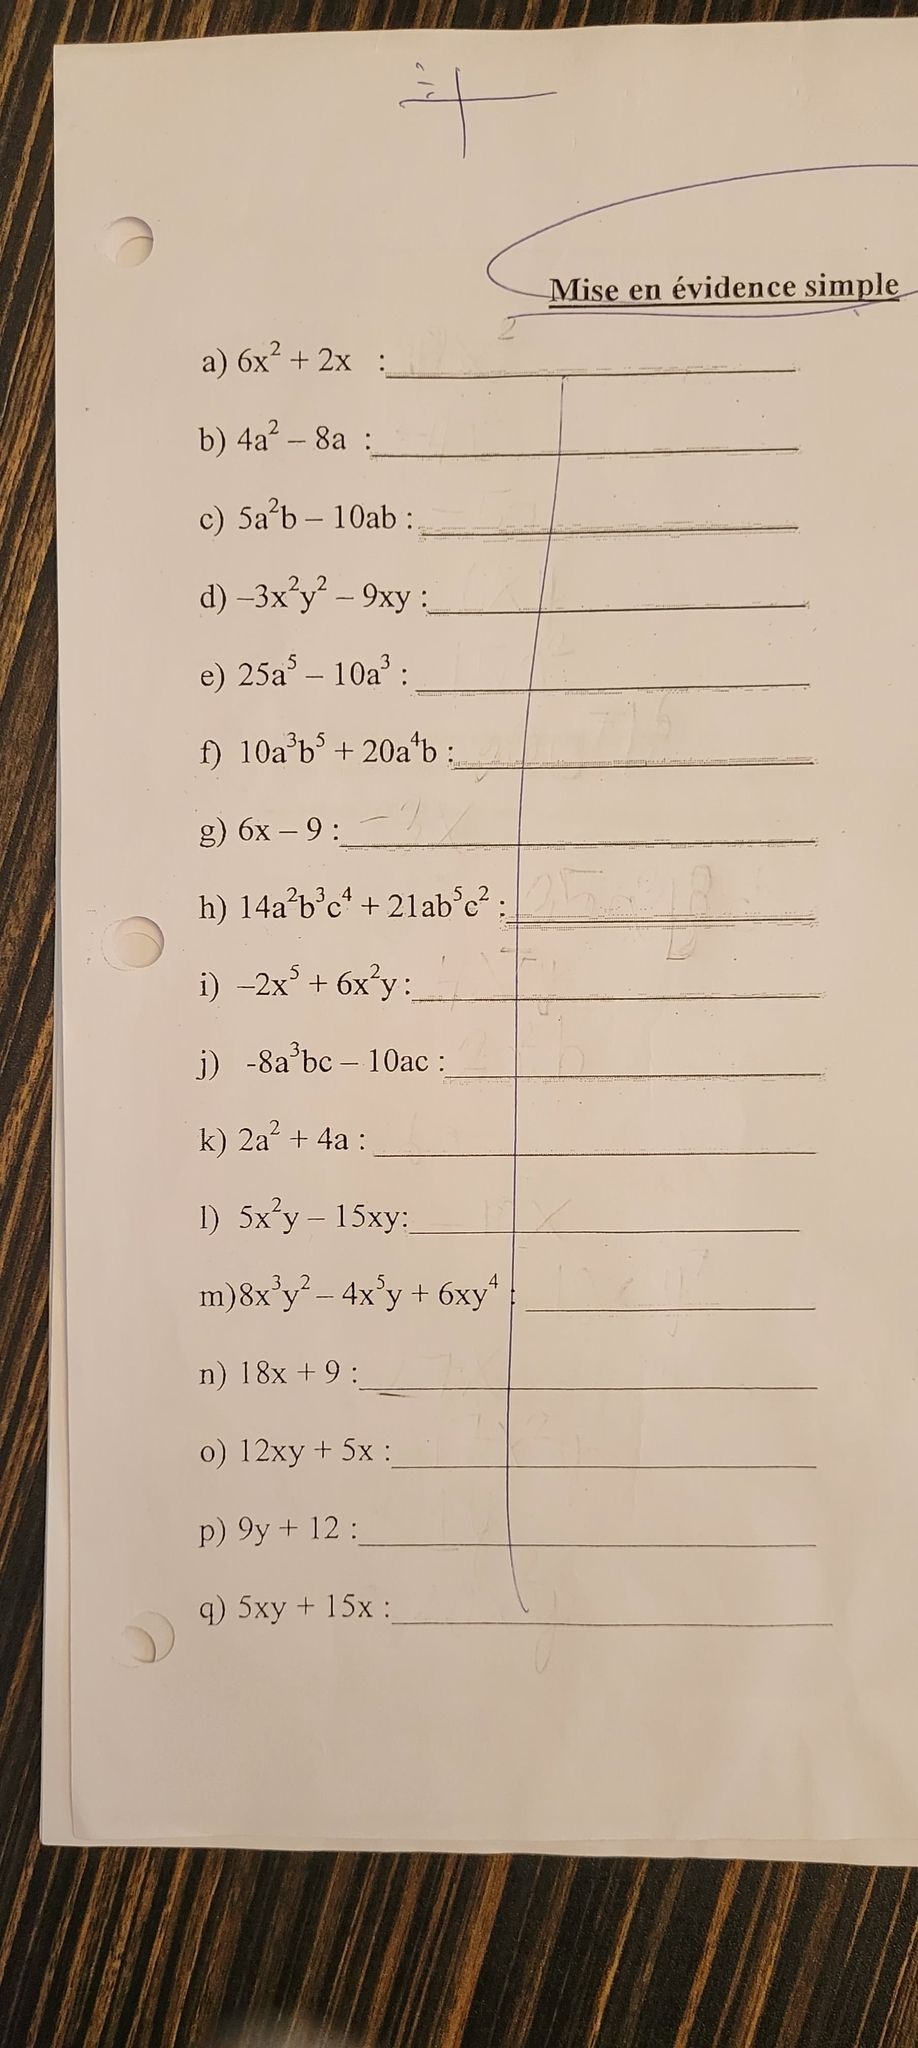 Mise en évidence simple
a) 6x² + 2x :
b) 4a² – 8a :
c) 5a²b – 10ab :
d) –3x²y² – 9xy :
e) 25a⁵ – 10a³ :
f) 10a³b⁵ + 20a⁴b :
g) 6x – 9 :
h) 14a²b³c⁴ + 21ab⁵c² :
i) –2x⁵ + 6x²y:
j) -8a³bc – 10ac :
k) 2a² + 4a :
l) 5x²y – 15xy:
m)8x³y² – 4x⁵y + 6xy⁴ :
n) 18x + 9 :
o) 12xy + 5x :
p) 9y + 12 :
q) 5xy + 15x :